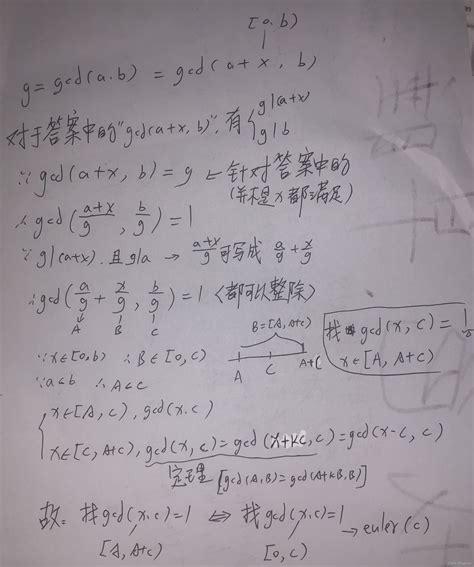 [0,b)
g=gcd(a.b) = gcd(a+x, b)
对于答案中的"gcd(a+x,b)",有 { g|(a+x)
g|b
∵ gcd(a+x, b)=g ← 针对答案中的
(并不是x都满足)
∴ gcd(\frac{a+x}{g}, \frac{b}{g})=1
∵ g|(a+x).且g|a → \frac{a+x}{g}可写成 \frac{a}{g}+\frac{x}{g}
∴ gcd(\frac{a}{g}+\frac{x}{g}, \frac{b}{g})=1 (都可以整除)
A B C
∵x∈[0,b) ∴B∈[0,C)
∵a<b ∴A<C
B=[A,A+C)
A C A+C
找 gcd(x,C)=1
x∈[A,A+C)
{ x∈[A,C), gcd(x.c)
x∈[C,A+C), gcd(x,C)=gcd(x+KC,C)=gcd(x-C,C)
定理 [gcd(A,B)=gcd(A+KB,B)]
故: 找gcd(x.c)=1 ⇔ 找gcd(x.c)=1 → euler(c)
[A,A+C) [0,C)